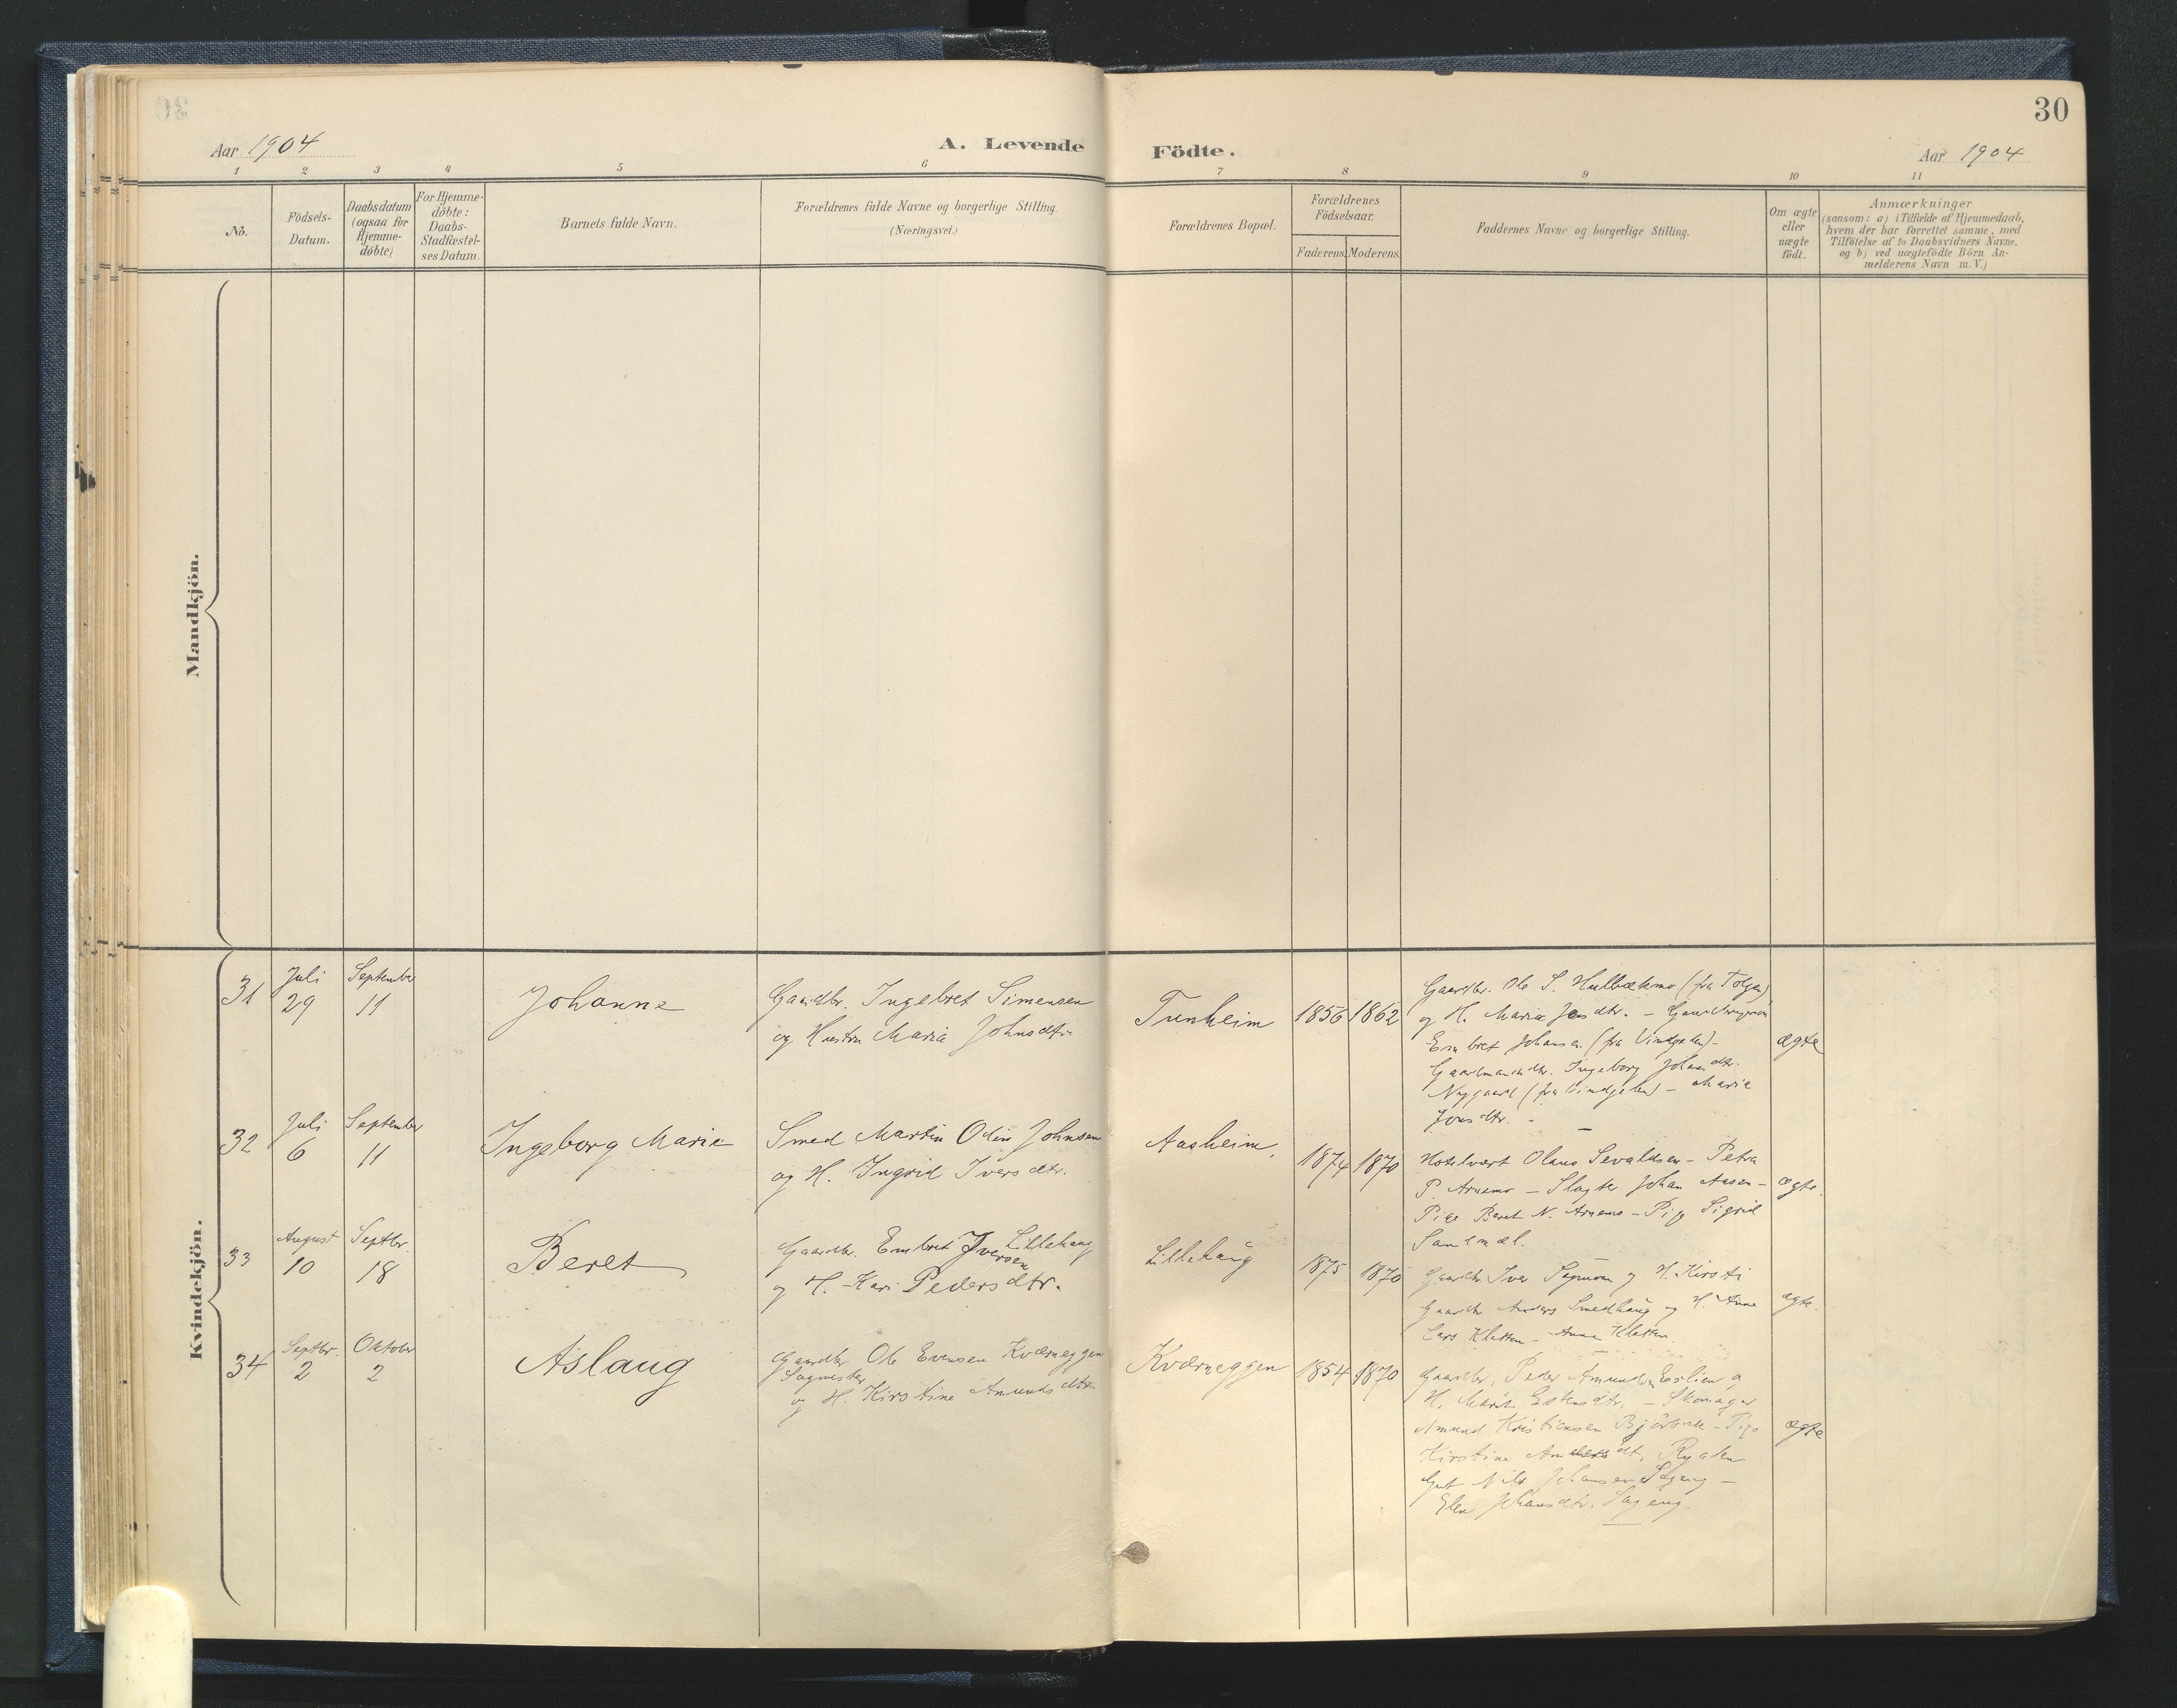 30
Aar 1904
A. Levende
Födte.
Aar 1904
1 2 3 4 5 6 7 8 9 10 11
No.
Födsels-
Datum.
Daabsdatum
(ogsaa for
Hjemme-
döbte)
For Hjemme-
döbte:
Daabs-
Stadfæstel-
ses Datum.
Barnets fulde Navn.
Forældrenes fulde Navne og borgerlige Stilling.
(Næringsvei.)
Forældrenes Bopæl.
Forældrenes
Födselsaar.
Faderens.
Moderens.
Faddernes Navne og borgerlige Stilling.
Om ægte
eller
uægte
födt.
Anmærkninger
(saasom: a) i Tilfælde af Hjemmedaab,
hvem der har forrettet samme, med
Tilföielse af to Daabsvidners Navne.
og b) ved uægtefödte Börn An-
melderens Navn m. V.)
Mandkjön.
Kvindekjön.
31
Juli
29
September
11
Johanne
Gaardbr. Ingebret Simensen
og Hustru Maria Johnsdtr.
Tunheim
1856
1862
Gaardbr. Ole S. Hulbækmo (fra Tolgen)
og H. Maria Jensdtr. -
Embret Johansen (fra Vindgelen) -
Gaardmandsdtr. Ingeborg Johansdtr.
Nygaard (fra Vindgelen) - Marie
Jonsdtr. -
ægte
32
Juli
6
September
11
Ingeborg Marie
Smed Martin Odin Johnsen
og H. Ingrid Iversdtr.
Aasheim.
1874
1870
Hotelvært Olaus Sevaldsen - Petra
P. Arnemo - Slagter Johan Aasen -
Pige Beret N. Arnemo - Pige Sigrid
Sandmæl.
ægte.
33
August
10
Septbr.
18
Beret
Gaardbr. Embret Iversen Lillehaug
og H. Kari Pedersdtr.
Lillehaug
1875
1870
Gaardbr. Iver og H. Kirsti
Gaardbr. Anders Smedhaug og H. Anne
Lars Kletten - Anne Kletten.
ægte.
34
Septbr.
2
Oktober
2
Aslaug
Gaardbr. Ole Evensen Kværneggen
Sagmester
og H. Kirstine Amundsdtr.
Kværneggen
1854
1870
Gaardbr. Peder Amundsen Eslien og
H. Marit Estensdtr. - Skomager
Amund Kristiansen - Pige
Kirstine
Gut Nils Johansen Sageng -
Elen Johansdtr. Sageng.
ægte